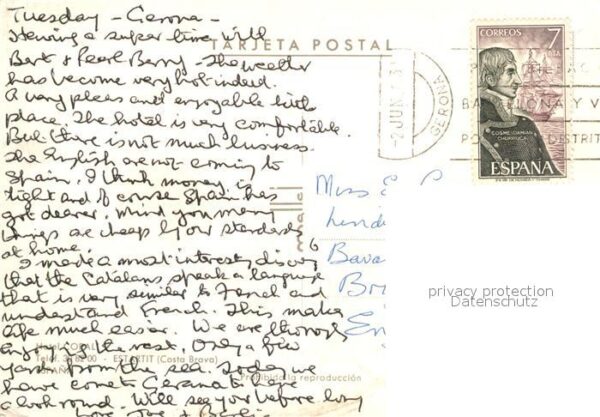 Tuesday - Gerona -
Having a super time with
TARJETA POSTAL
Bert & Pearl Berry - the weather
has become very hot indeed.
A very pleas and enjoyable little
place. The hotel is very comfortable.
But there is not much business.
The English are not coming to
Spain, I think money is
tight and of course Spain has
got dearer, mind you many
things are cheap by our standards
at home.
I made a most interesty discovy
that the Catalans speak a language
that is very similar to French and
understand French. This makes
life much easier. We are thorougly
enjoyg the rest. Only a few
yards from the sea. Today we
have come to Gerona to have
a look round. Will see you before long
Love
CORREOS 7
COSME DAMIAN
CHURRUCA
ESPAÑA
GERONA
2 JUN
Miss E
privacy protection
Datenschutz
Teléf.
ESTARTIT (Costa Brava)
Prohibida la reproducción